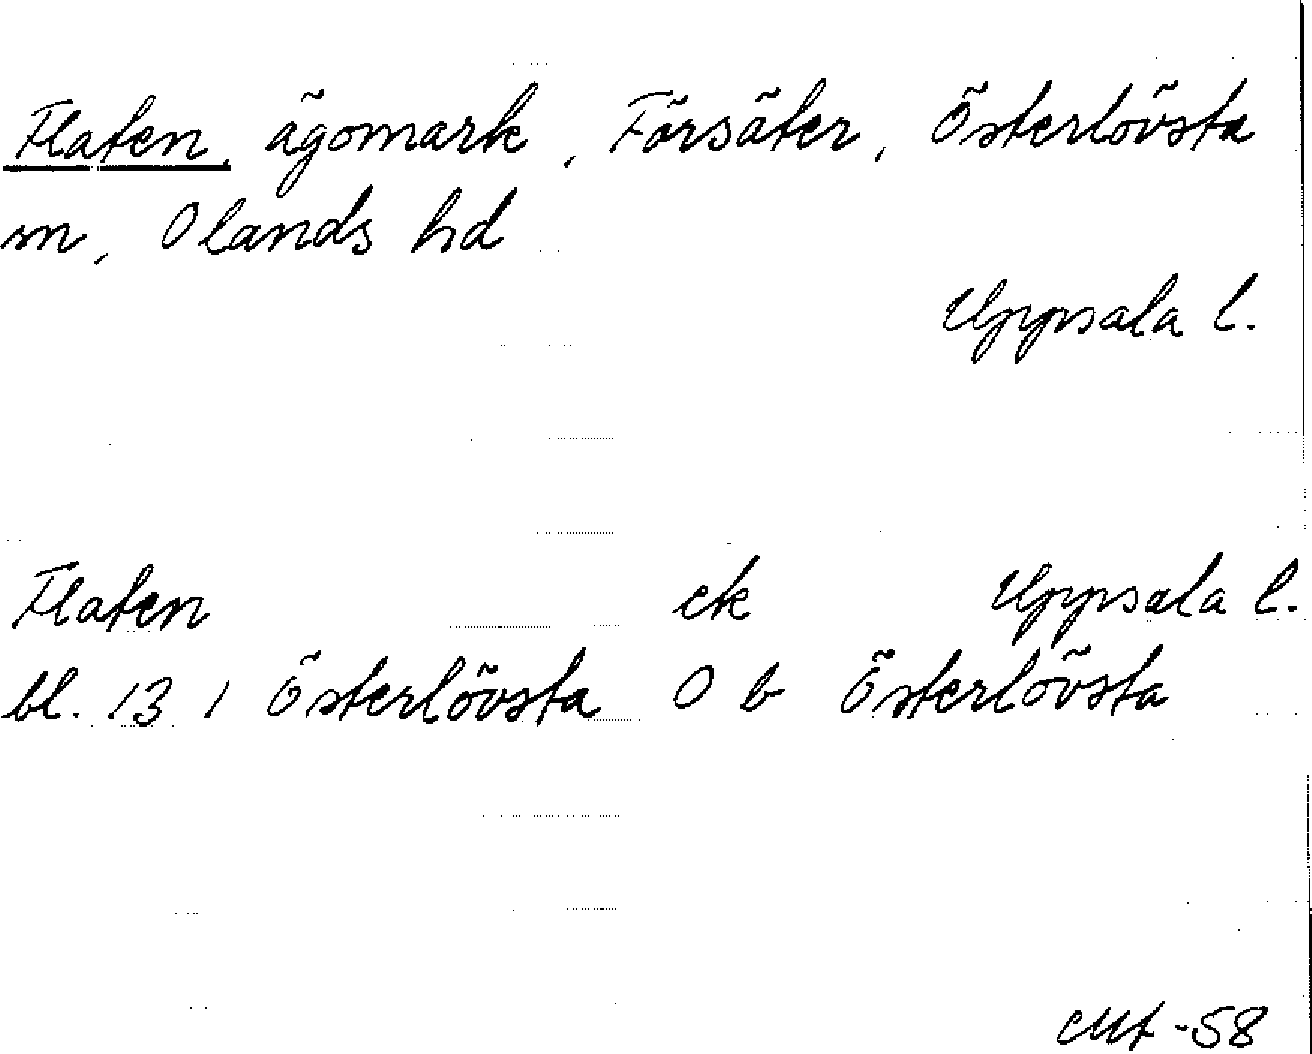 Flaten, ägomark, Försäter, Österlövsta
sn, Olands hd
Uppsala l.
Flaten ek Uppsala l.
bl. 13 1 Österlövsta O b Österlövsta
-58